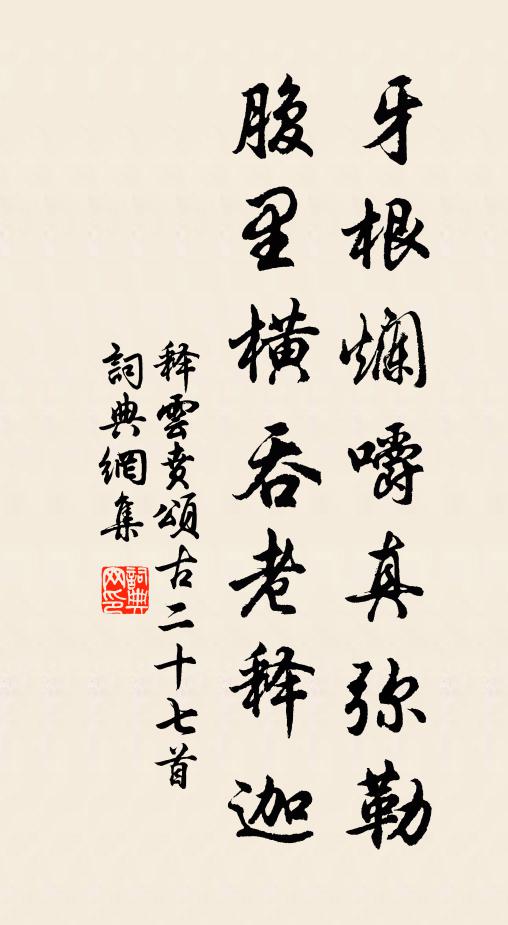 牙根爛嚼真弥勒
腹里橫吞老释迦
释雲賁頌古二十七首
詞典網集
詞典网印